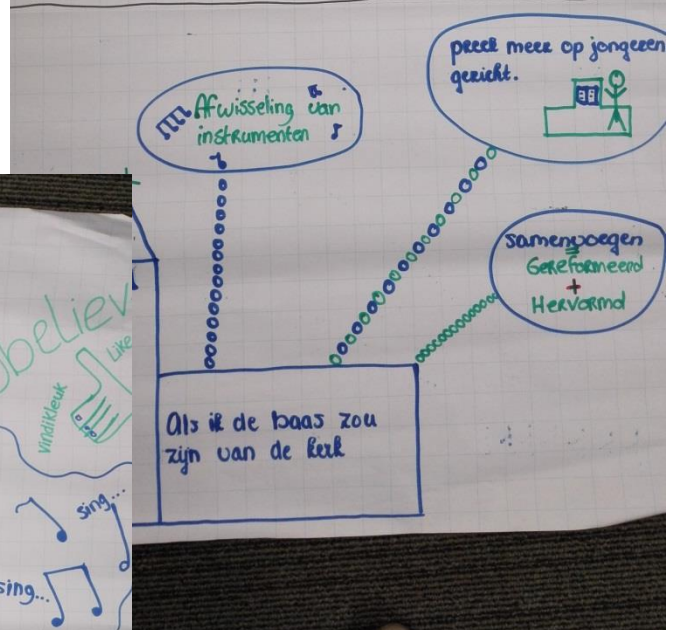 Afwisseling van
instrumenten
preek meer op jongeren
gericht.
samenvoegen
=
Gereformeerd
+
Hervormd
Als ik de baas zou
zijn van de kerk
believ
vindikleuk
Like
sing...
sing...